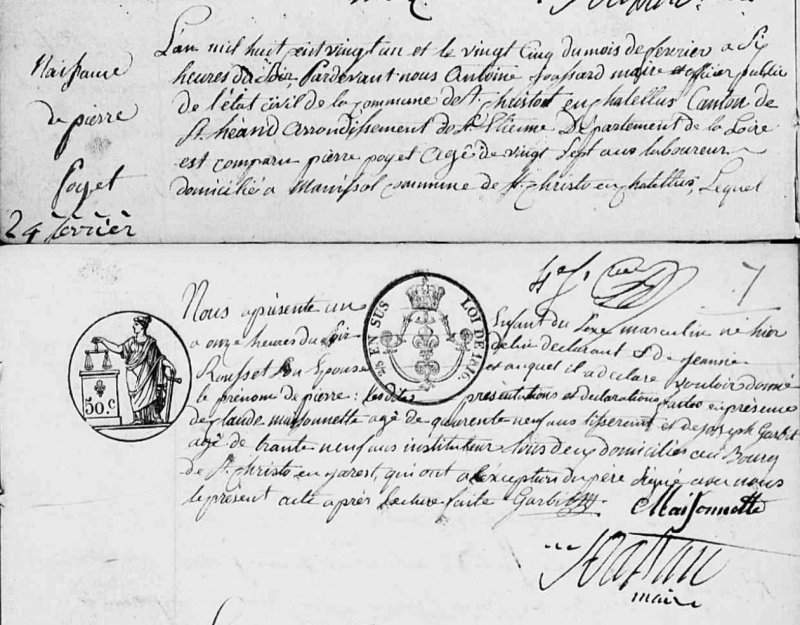 Naissance
de pierre
poyet
24 février
L'an mil huit cent vingt un et le vingt cinq du mois de fevrier a six
heures du soir, Pardevant nous Antoine maire et officier public
de l'état civil de la commune de St christo en chatellus Canton de
St héand arrondissement de St Etienne Département de la Loire
est comparu pierre poyet agé de vingt sept ans laboureur
domicilié a Manissol commune de St christo en chatellus, Lequel
7
Nous a présenté un Enfant du sexe masculin né hier
a onze heures du soir de lui declarant & de jeanne
Rousset son Epouse et auquel il a declaré vouloir donné
le prénom de pierre : les dites présentations et declarations faites en présence
de claude maisonnette agé de quarente neuf ans tisserant et de joseph Garbit
agé de trante neuf ans instituteur tous deux domiciliés au Bourg
de St christo en jarest, qui ont a l'exception du père signé avec nous
le présent acte après lecture faite Garbit
Maisonnette
maire
50 C
EN SUS
LOI DE 1816.